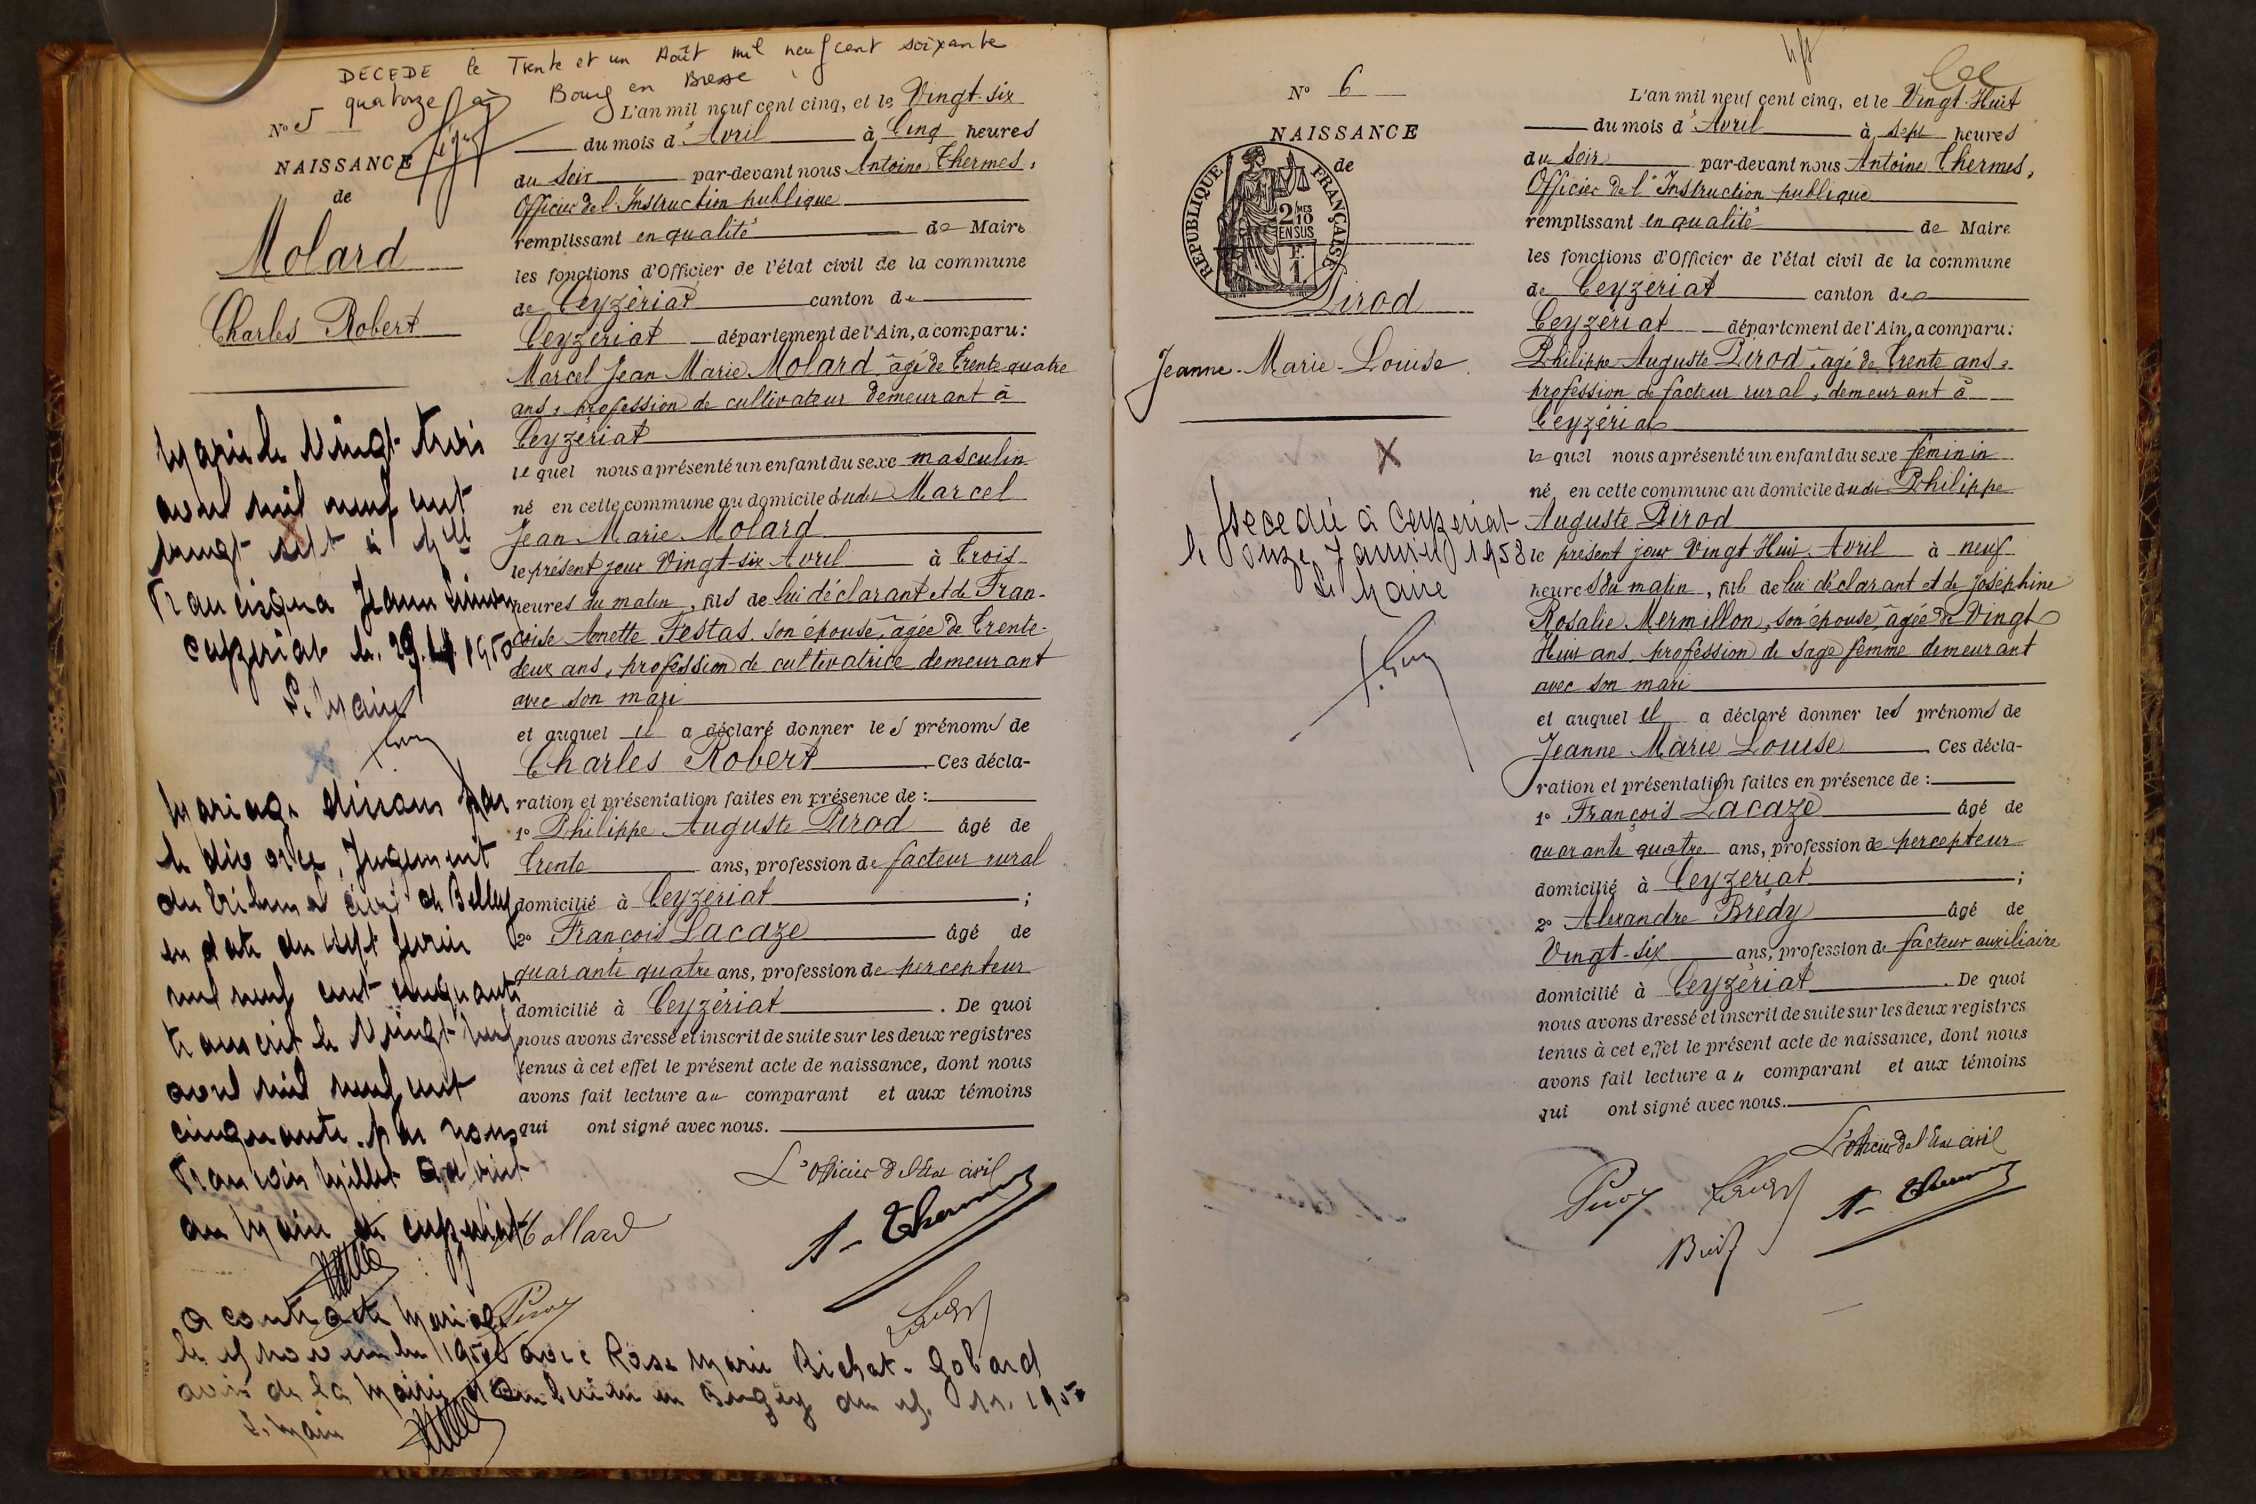 DECEDE le Trente et un Août mil neuf cent soixante
quatorze à Bourg en Bresse
N° 5
NAISSANCE
de
Molard
Charles Robert
Marié le Vingt trois
avril mil neuf cent
vingt sept à Melle
Francisqua Jeanne
Ceyzeriat le 29.4.1950
Le Maire
Mariage dissous par
le divorce, Jugement
du tribunal civil de Belley
en date du sept
mil neuf cent cinquante
transcrit le Vingt neuf
avril mil neuf cent
cinquante. Par nous
François Millet Adjoint
au Maire de Ceyzeriat
a contracté mariage
le novembre 1950 avec Rose Marie Bichat-Gobard
avis de la Mairie d'Ambérieu en Bugey du 11. 195
Le Maire
L'an mil neuf cent cinq, et le Vingt-six
du mois d'Avril à Cinq heures
du Soir par-devant nous Antoine Thermes,
Officier de l'Instruction publique
remplissant en qualité de Maire
les fonctions d'Officier de l'état civil de la commune
de Ceyzériat canton de
Ceyzériat département de l'Ain, a comparu:
Marcel Jean Marie Molard âgé de Trente-quatre
ans, profession de cultivateur demeurant à
Ceyzériat
lequel nous a présenté un enfant du sexe masculin
né en cette commune au domicile dudit Marcel
Jean Marie Molard
le présent jour Vingt-six Avril à Trois
heures du matin, fils de lui déclarant et de Fran-
çoise Annette Festas son épouse, âgée de Trente-
deux ans, profession de cultivatrice demeurant
avec son mari
et auquel il a déclaré donner les prénoms de
Charles Robert Ces décla-
ration et présentation faites en présence de :
1° Philippe Auguste Pirod âgé de
Trente ans, profession de facteur rural
domicilié à Ceyzériat ;
2° François Lacaze âgé de
quarante quatre ans, profession de percepteur
domicilié à Ceyzériat . De quoi
nous avons dressé et inscrit de suite sur les deux registres
tenus à cet effet le présent acte de naissance, dont nous
avons fait lecture au comparant et aux témoins
qui ont signé avec nous.
L'Officier de l'Etat civil
Mollard
A. Thermes
N° 6
NAISSANCE
de
REPUBLIQUE FRANÇAISE
2/10MES
EN SUS
F.
1
Pirod
Jeanne-Marie-Louise
X
Décédée à Ceyzériat
le onze Janvier 1958
Le Maire
L'an mil neuf cent cinq, et le Vingt-Huit
du mois d'Avril à sept heures
du Soir par-devant nous Antoine Thermes,
Officier de l'Instruction publique
remplissant en qualité de Maire
les fonctions d'Officier de l'état civil de la commune
de Ceyzériat canton de
Ceyzériat département de l'Ain, a comparu:
Philippe Auguste Pirod, âgé de Trente ans,
profession de facteur rural, demeurant à
Ceyzériat
lequel nous a présenté un enfant du sexe féminin
né en cette commune au domicile dudit Philippe
Auguste Pirod
le présent jour Vingt Huit Avril à neuf
heures du matin, fille de lui déclarant et de Joséphine
Rosalie Mermillon, son épouse, âgée de Vingt
Huit ans, profession de sage femme demeurant
avec son mari
et auquel il a déclaré donner les prénoms de
Jeanne Marie Louise Ces décla-
ration et présentation faites en présence de :
1° François Lacaze âgé de
quarante quatre ans, profession de percepteur
domicilié à Ceyzériat ;
2° Alexandre Brédy âgé de
Vingt-six ans, profession de facteur auxiliaire
domicilié à Ceyzériat . De quoi
nous avons dressé et inscrit de suite sur les deux registres
tenus à cet effet le présent acte de naissance, dont nous
avons fait lecture au comparant et aux témoins
qui ont signé avec nous.
L'Officier de l'Etat civil
A. Thermes